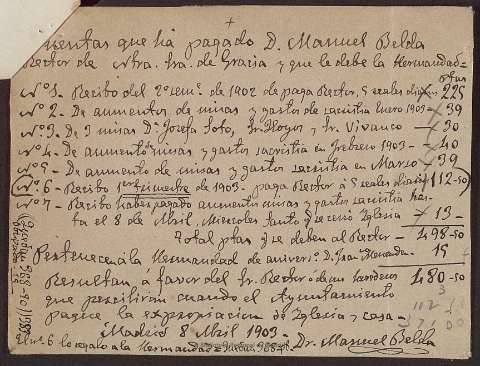 +
Cuentas que há pagado D. Manuel Belda
Rector de Ntra. Sra. de Gracia y que le debe la Hermandad=
ptas
Nº 1. Recibo del 2º semre de 1902 de paga Rector, 5 reales diarios 225
Nº 2. De aumentos de misas y gastos sacristia Enero 1903 - 39
Nº 3. De 3 misas Dª Josefa Soto, Sr. Hoyos y Sr. Vivanco - 30
Nº 4. De aumento misas y gastos sacristia en Febrero 1903 - 40
Nº 5. De aumento de misas y gastos sacristia en Marzo - 39
Nº 6. Recibo 1er trimestre de 1903. paga Rector á 5 reales diarios 112-50
Nº 7. Recibo haber pagado aumentos misas y gastos sacristia has-
ta el 8 de Abril, Miercoles Santo q se cerró Iglesia - 13 -
Total ptas q se deben al Rector - 498-50
Pertenecen á la Hermandad de aniverº. D. Fra. Moncada. 15
Resultan á favor del Sr. Rector ó de sus herederos 480-50
que percibirán cuando el Ayuntamiento
pague la expropiacion de Iglesia y casa-
Madrid 8 Abril 1903.
El nº 6 lo regalo a la Hermandad=
Dr. Manuel Belda